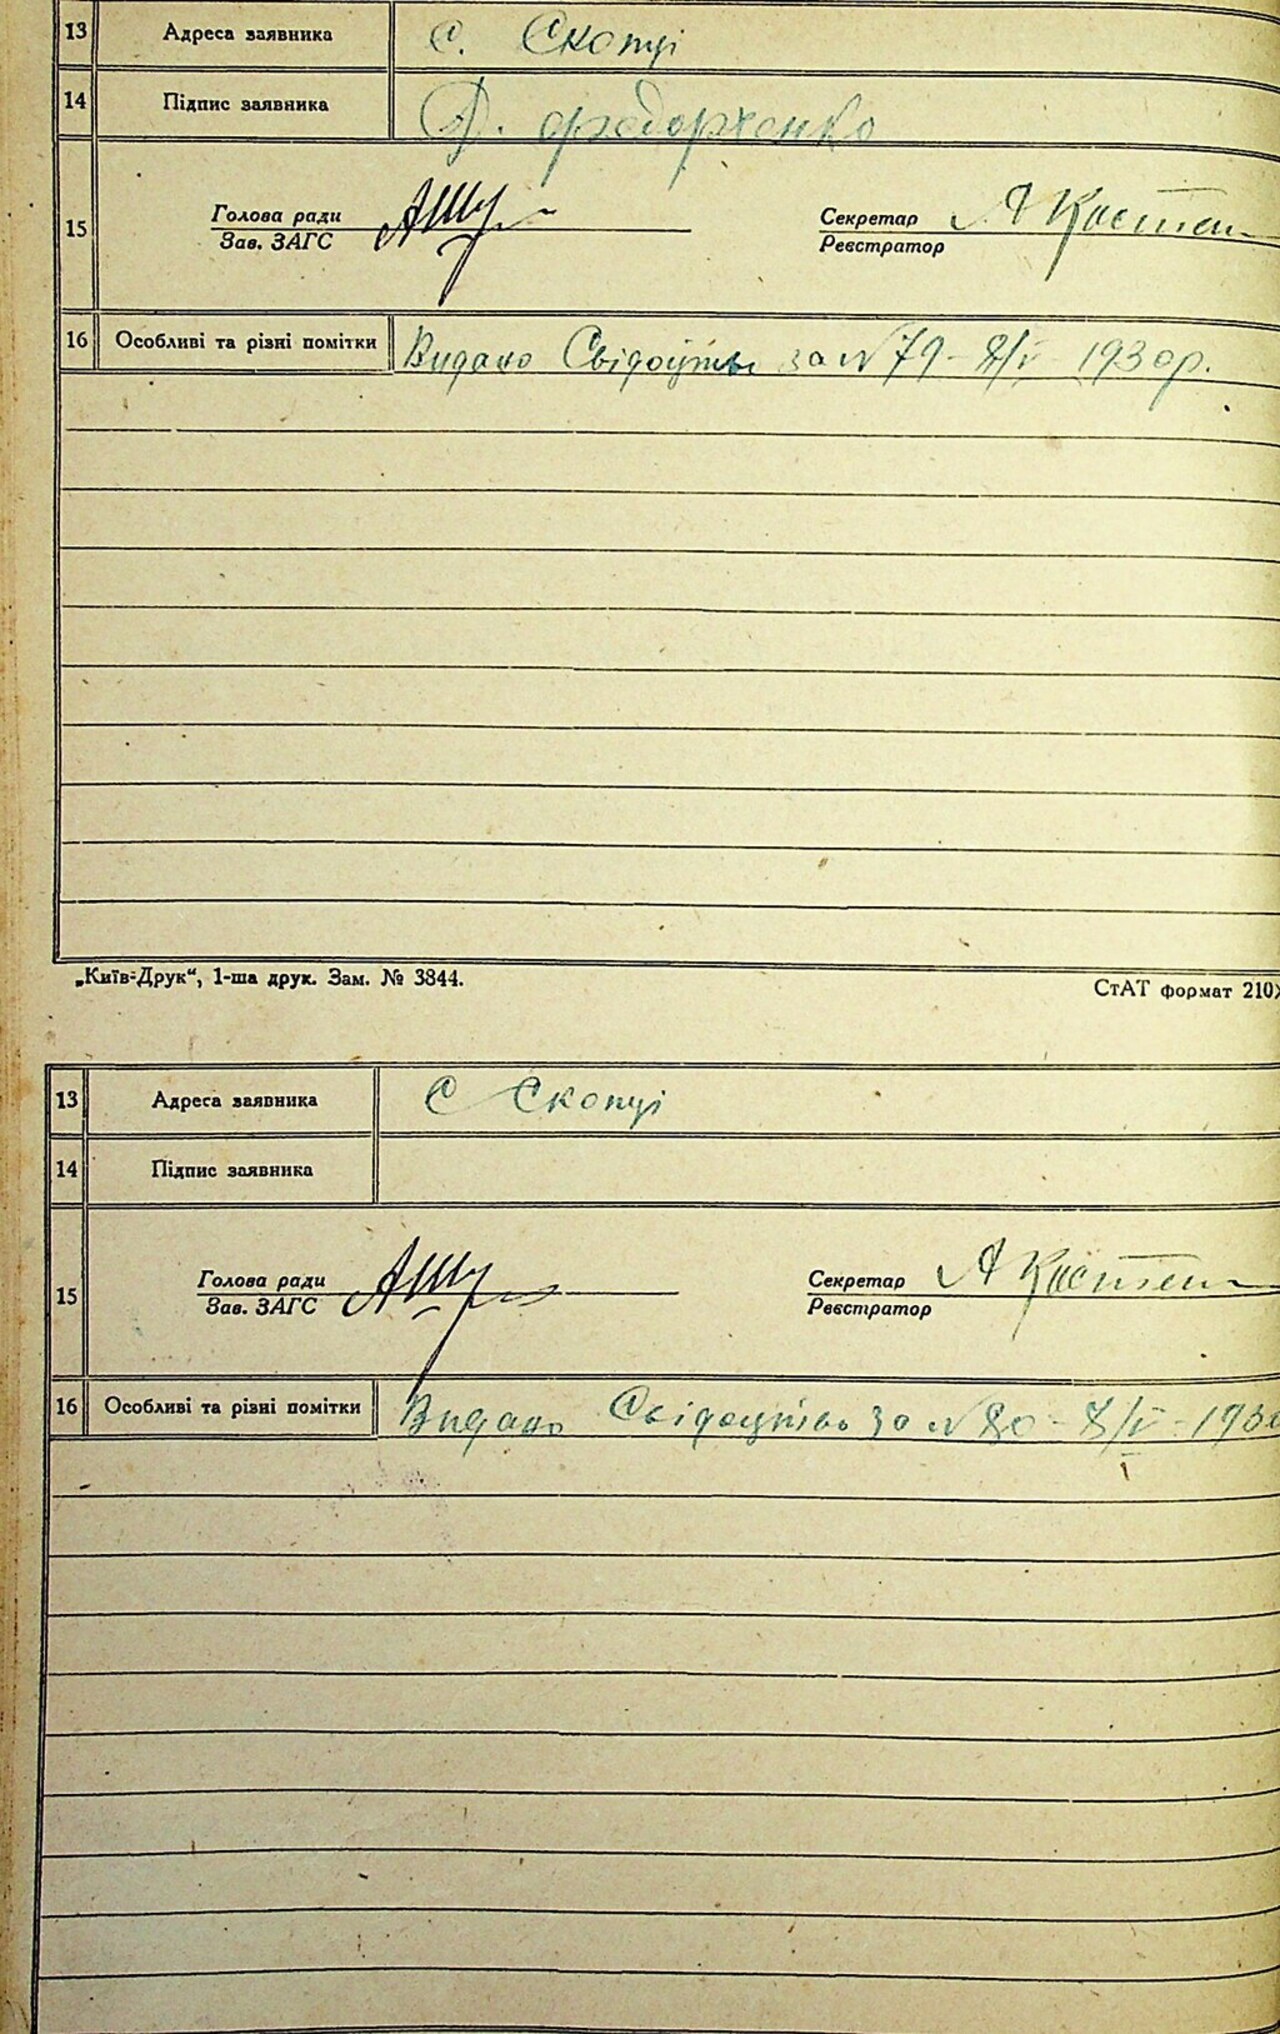 13 Адреса заявника с. Скопці
14 Підпис заявника Федорченко
15 Голова ради Секретар А Костен
Зав. ЗАГС Реєстратор
16 Особливі та різні помітки Видано Свідоцтво за N 79 - 8/V 1930р.
„Київ-Друк“, 1-ша друк. Зам. № 3844.
СтАТ формат 210
13 Адреса заявника С Скопці
14 Підпис заявника
15 Голова ради Секретар А Костен
Зав. ЗАГС Реєстратор
16 Особливі та різні помітки Видано Свідоцтво за N 80 - 8/V - 1930